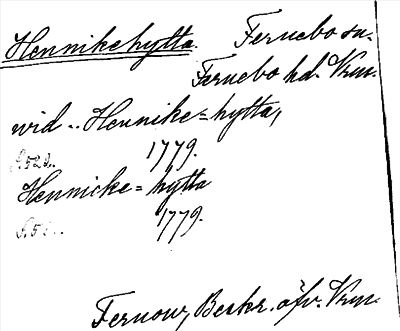 Hennikehytta. Fernebo sn.
Fernebo hd. Vrm.
wid .. Hennike=hytta,
S. 52 1779.
Hennicke=hytta
S. 5 1779.
Fernow, Beskr. öfv. Vrm.